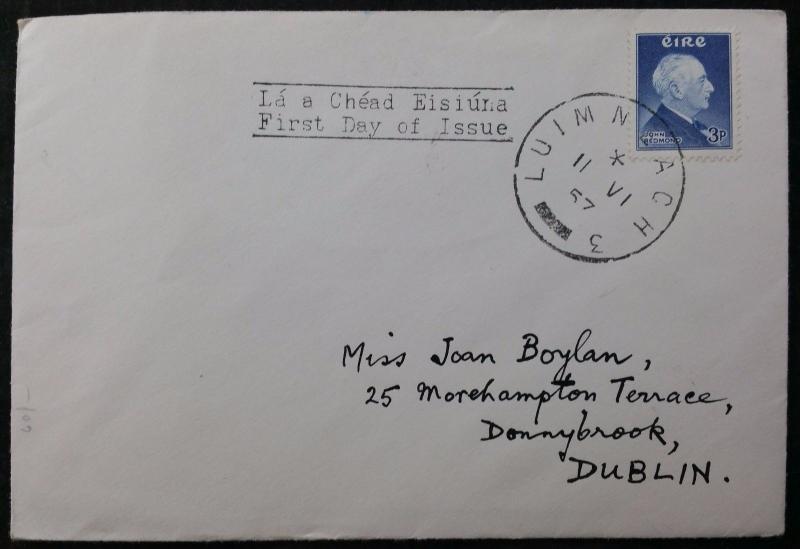 Lá a Chéad Eisiúna
First Day of Issue
éire
JOHN
REDMOND
3P
LUIMNEACH 3
*
11 VI
57
Miss Joan Boylan,
25 Morehampton Terrace,
Donnybrook,
DUBLIN.